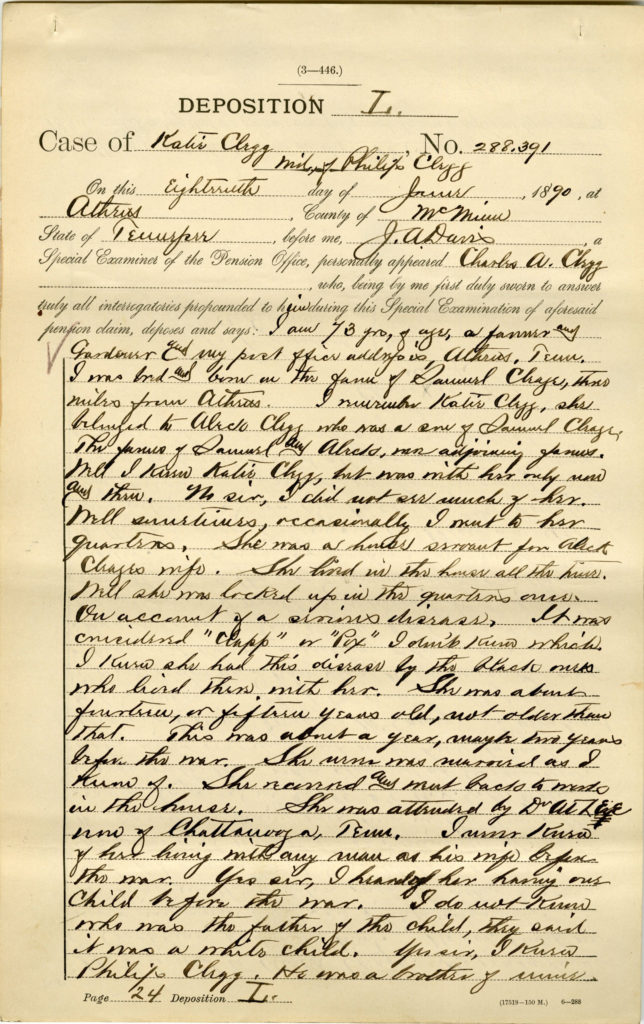 (3—446.)
DEPOSITION I.
Case of Katie Clegg, No. 288.391
wid, of Philip Clegg
On this Eighteenth day of June, 1890, at
Athens, County of McMinn
State of Tennessee, before me, J. A. Davis, a
Special Examiner of the Pension Office, personally appeared Charles A. Clegg
, who, being by me first duly sworn to answer
truly all interrogatories propounded to him during this Special Examination of aforesaid
pension claim, deposes and says: I am 73 yrs, of age, a farmer and
Gardener and my post office address is, Athens, Tenn.
I was bred and born on the farm of Samuel Clage, three
miles from Athens. I remember Katie Clegg, she
belonged to Aleck Clegg who was a son of Samuel Clage,
The farms of Samuel and Alecks, was adjoining farms.
Well I knew Katie Clegg, but was with her only now
and then. No sir, I did not see much of her.
Well sometimes, occasionally I went to her
quarters. She was a house servant for Aleck
Clages wife. She lived in the house all the time.
Well she was locked up in the quarters once.
On account of a serious disease. It was
considered "Clapp" or "Pox" I don't know which.
I knew she had this disease by the black ones
who lived there with her. She was about
fourteen, or fifteen years old, not older than
that. This was about a year, maybe two years
before the war. She never was married as I
know of. She recovered and went back to work
in the house. She was attended by Dr
now of Chattanooga, Tenn. I never knew
of her living with any man as his wife before
the war. Yes sir, I heard of her having one
child before the war. I do not know
who was the father of the child, they said
it was a white child. Yes sir, I knew
Philip Clegg. He was a brother of mine.
Page 24 Deposition I.
(17519—150 M.) 6—288